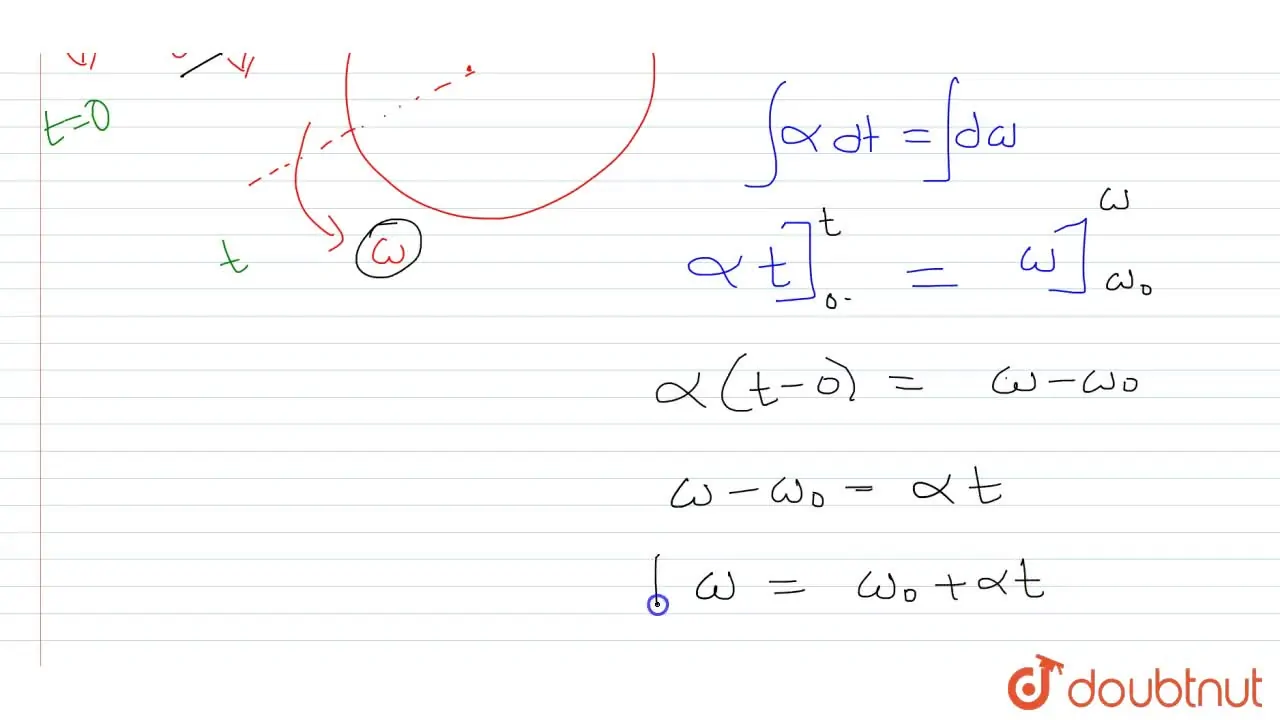 t=0
t
ω
∫α dt = ∫dω
α t]₀ᵗ = ω]ω₀^ω
α(t-0) = ω-ω₀
ω-ω₀ = αt
ω = ω₀+αt
doubtnut